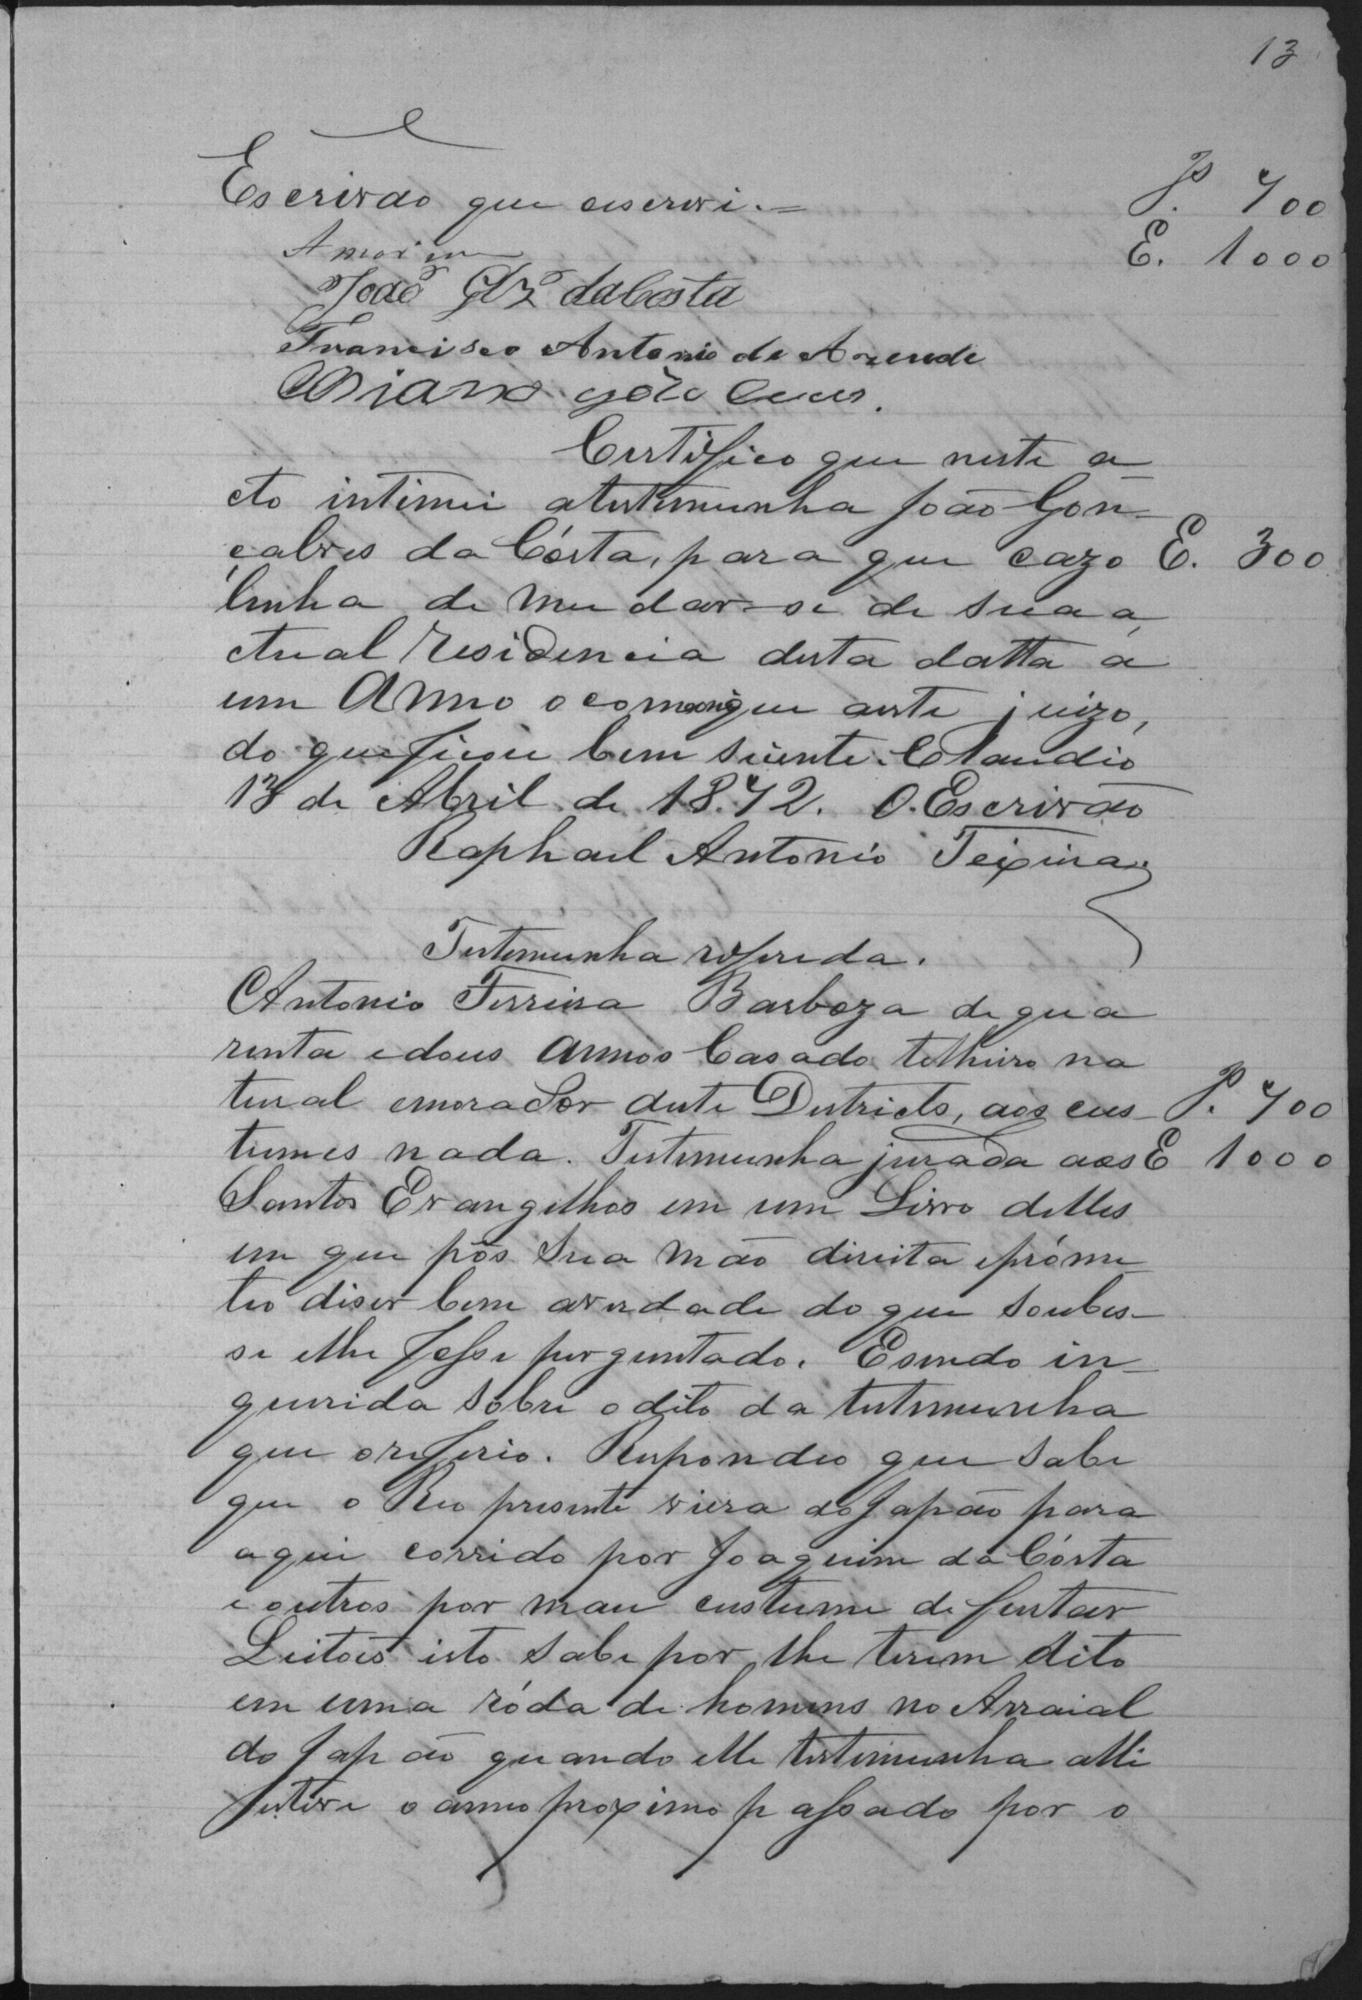 13
Escrivão que escrevi.=
J. 700
E. 1000
Amorim
João Glz da Costa
Francisco Antonio de Azevede
Certifico que neste a
cto intimei atestemunha João Gon-
çalves da Cósta, para que cazo
E. 300
tenha de mudar-se de sua a
ctual residencia desta datta a
um Anno o comonique aeste juizo,
do que ficou bem siente. Claudio
13 de Abril de 1872. O Escrivão
Raphael Antonio Teixeira
Testemunha referida.
Antonio Ferreira Barboza de qua
renta edous Annos Casado telheiro na
tural emorador deste Destricto, aos cus-
J. 700
tumes nada. Testemunha jurada aos
E 1000
Santos Evangelhos em um Livro delles
em que pôs sua mão direita epróme-
teo diser bem averdade do que soubes-
se elhe fosse perguntado. Esendo in-
querida sobre odito da testemunha
que oreferio. Respondeo que sabe
que o Reo presente viera do Japão para
aqui corrido por Joaquim da Cósta
e outros por mau custume de furtar
Leitoes isto sabe por lhe terem dito
em uma róda de homens no Arraial
do Japão quando elle testemunha alli
estive o anno proximo passado por o